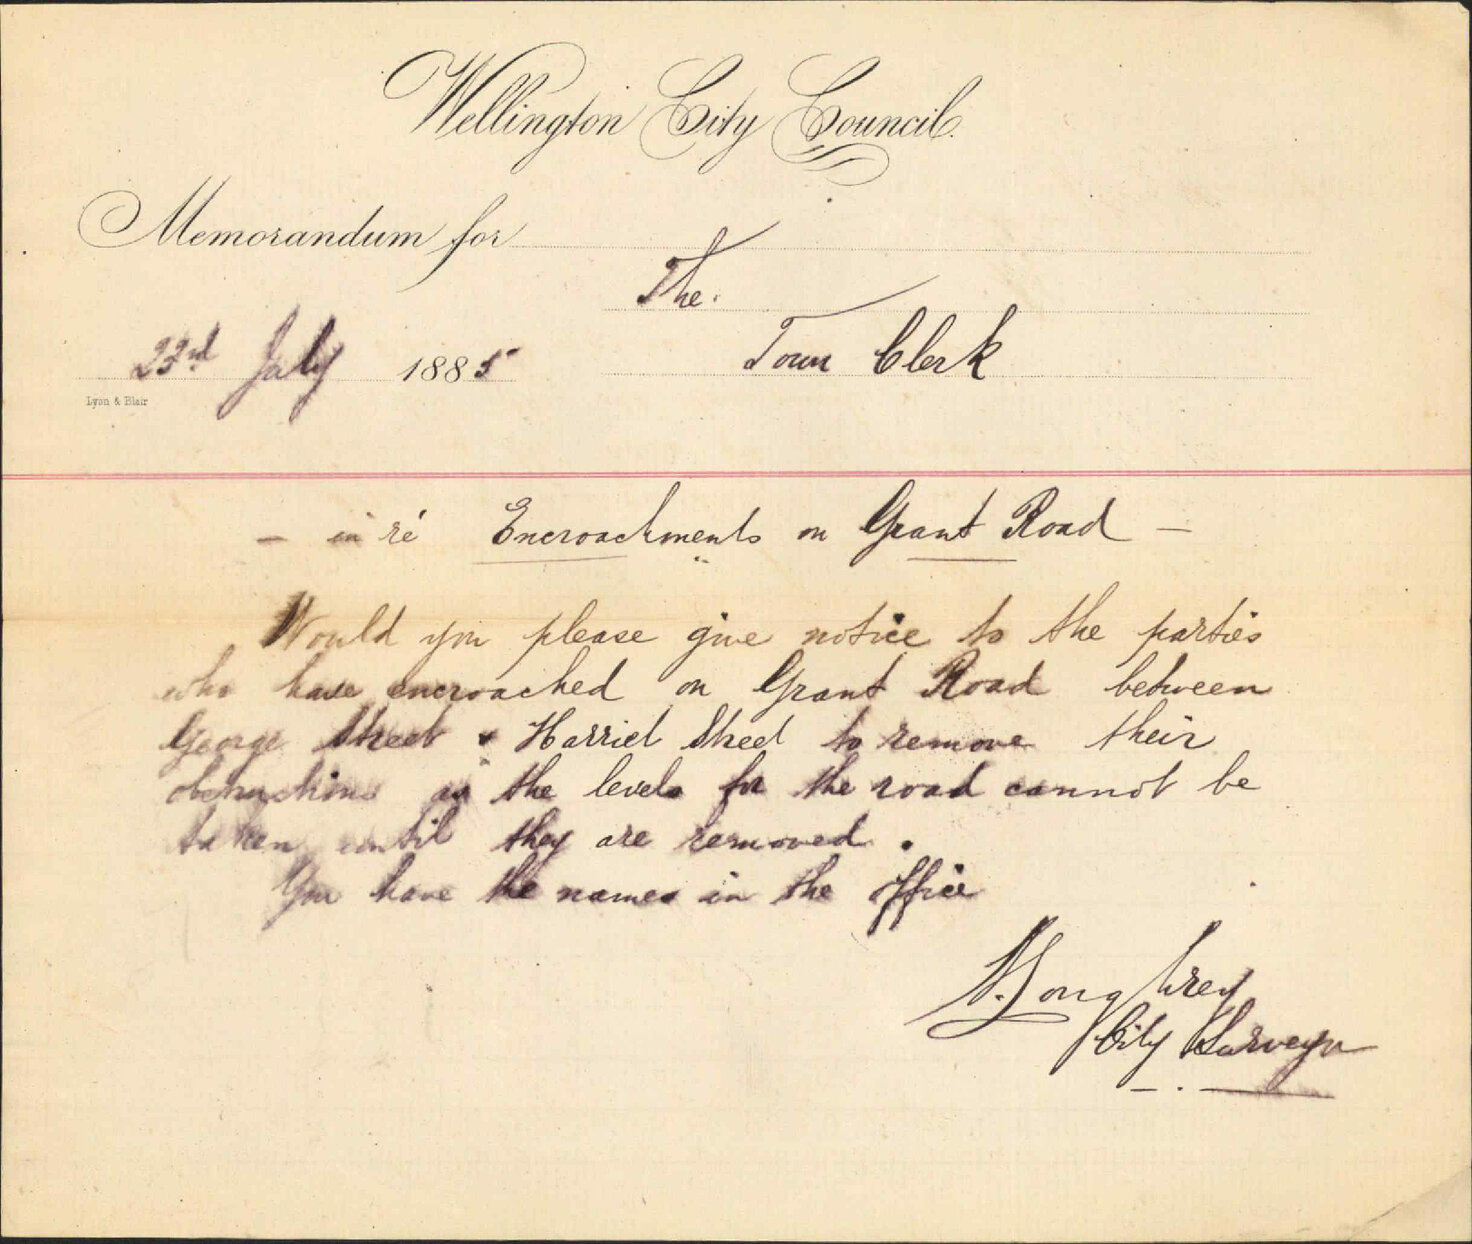 Wellington City Council.
Memorandum for
The
Town Clerk
23rd July 1885
Lyon & Blair
– in ré Encroachments on Grant Road –
Would you please give notice to the parties
who have encroached on Grant Road between
George Street & Harriet Street to remove their
obstructions as the levels for the road cannot be
taken until they are removed.
You have the names in the office
City Surveyor